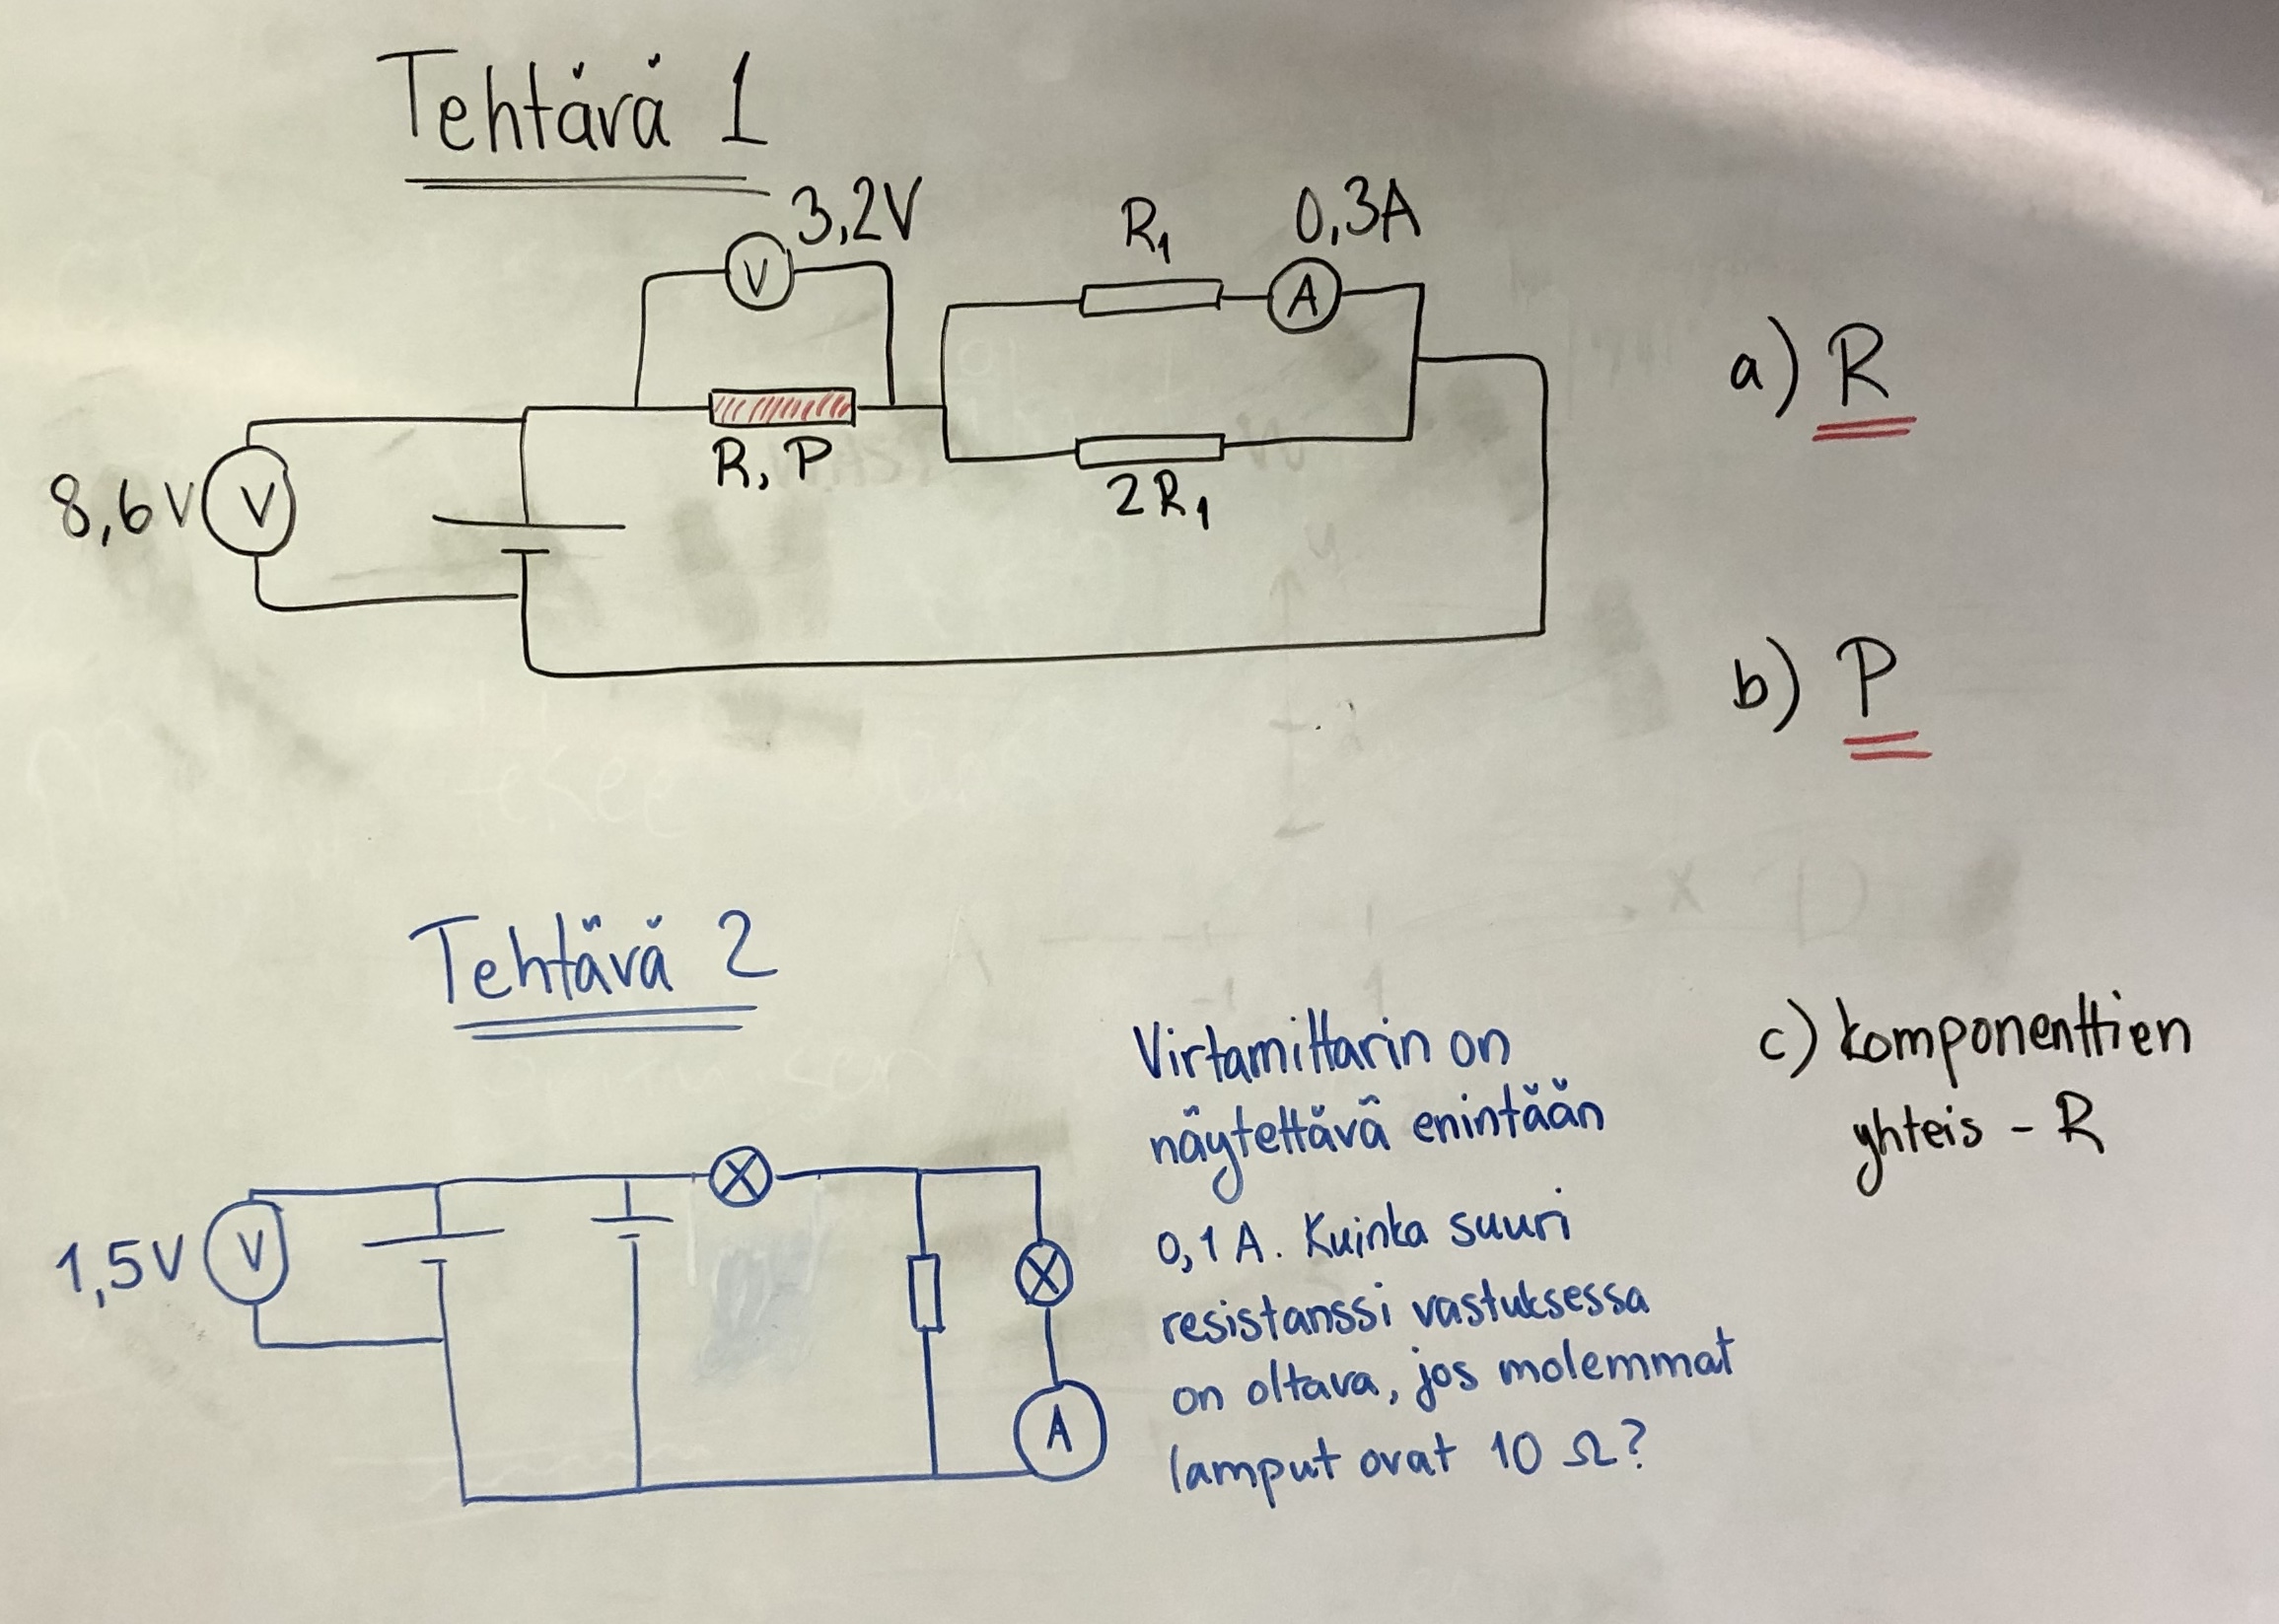 Tehtävä 1
3,2V
V
R₁
0,3A
A
R, P
2R₁
8,6V
V
a) R
b) P
Tehtävä 2
1,5V
V
A
Virtamittarin on
näytettävä enintään
0,1 A. Kuinka suuri
resistanssi vastuksessa
on oltava, jos molemmat
lamput ovat 10 Ω?
c) komponenttien
yhteis - R